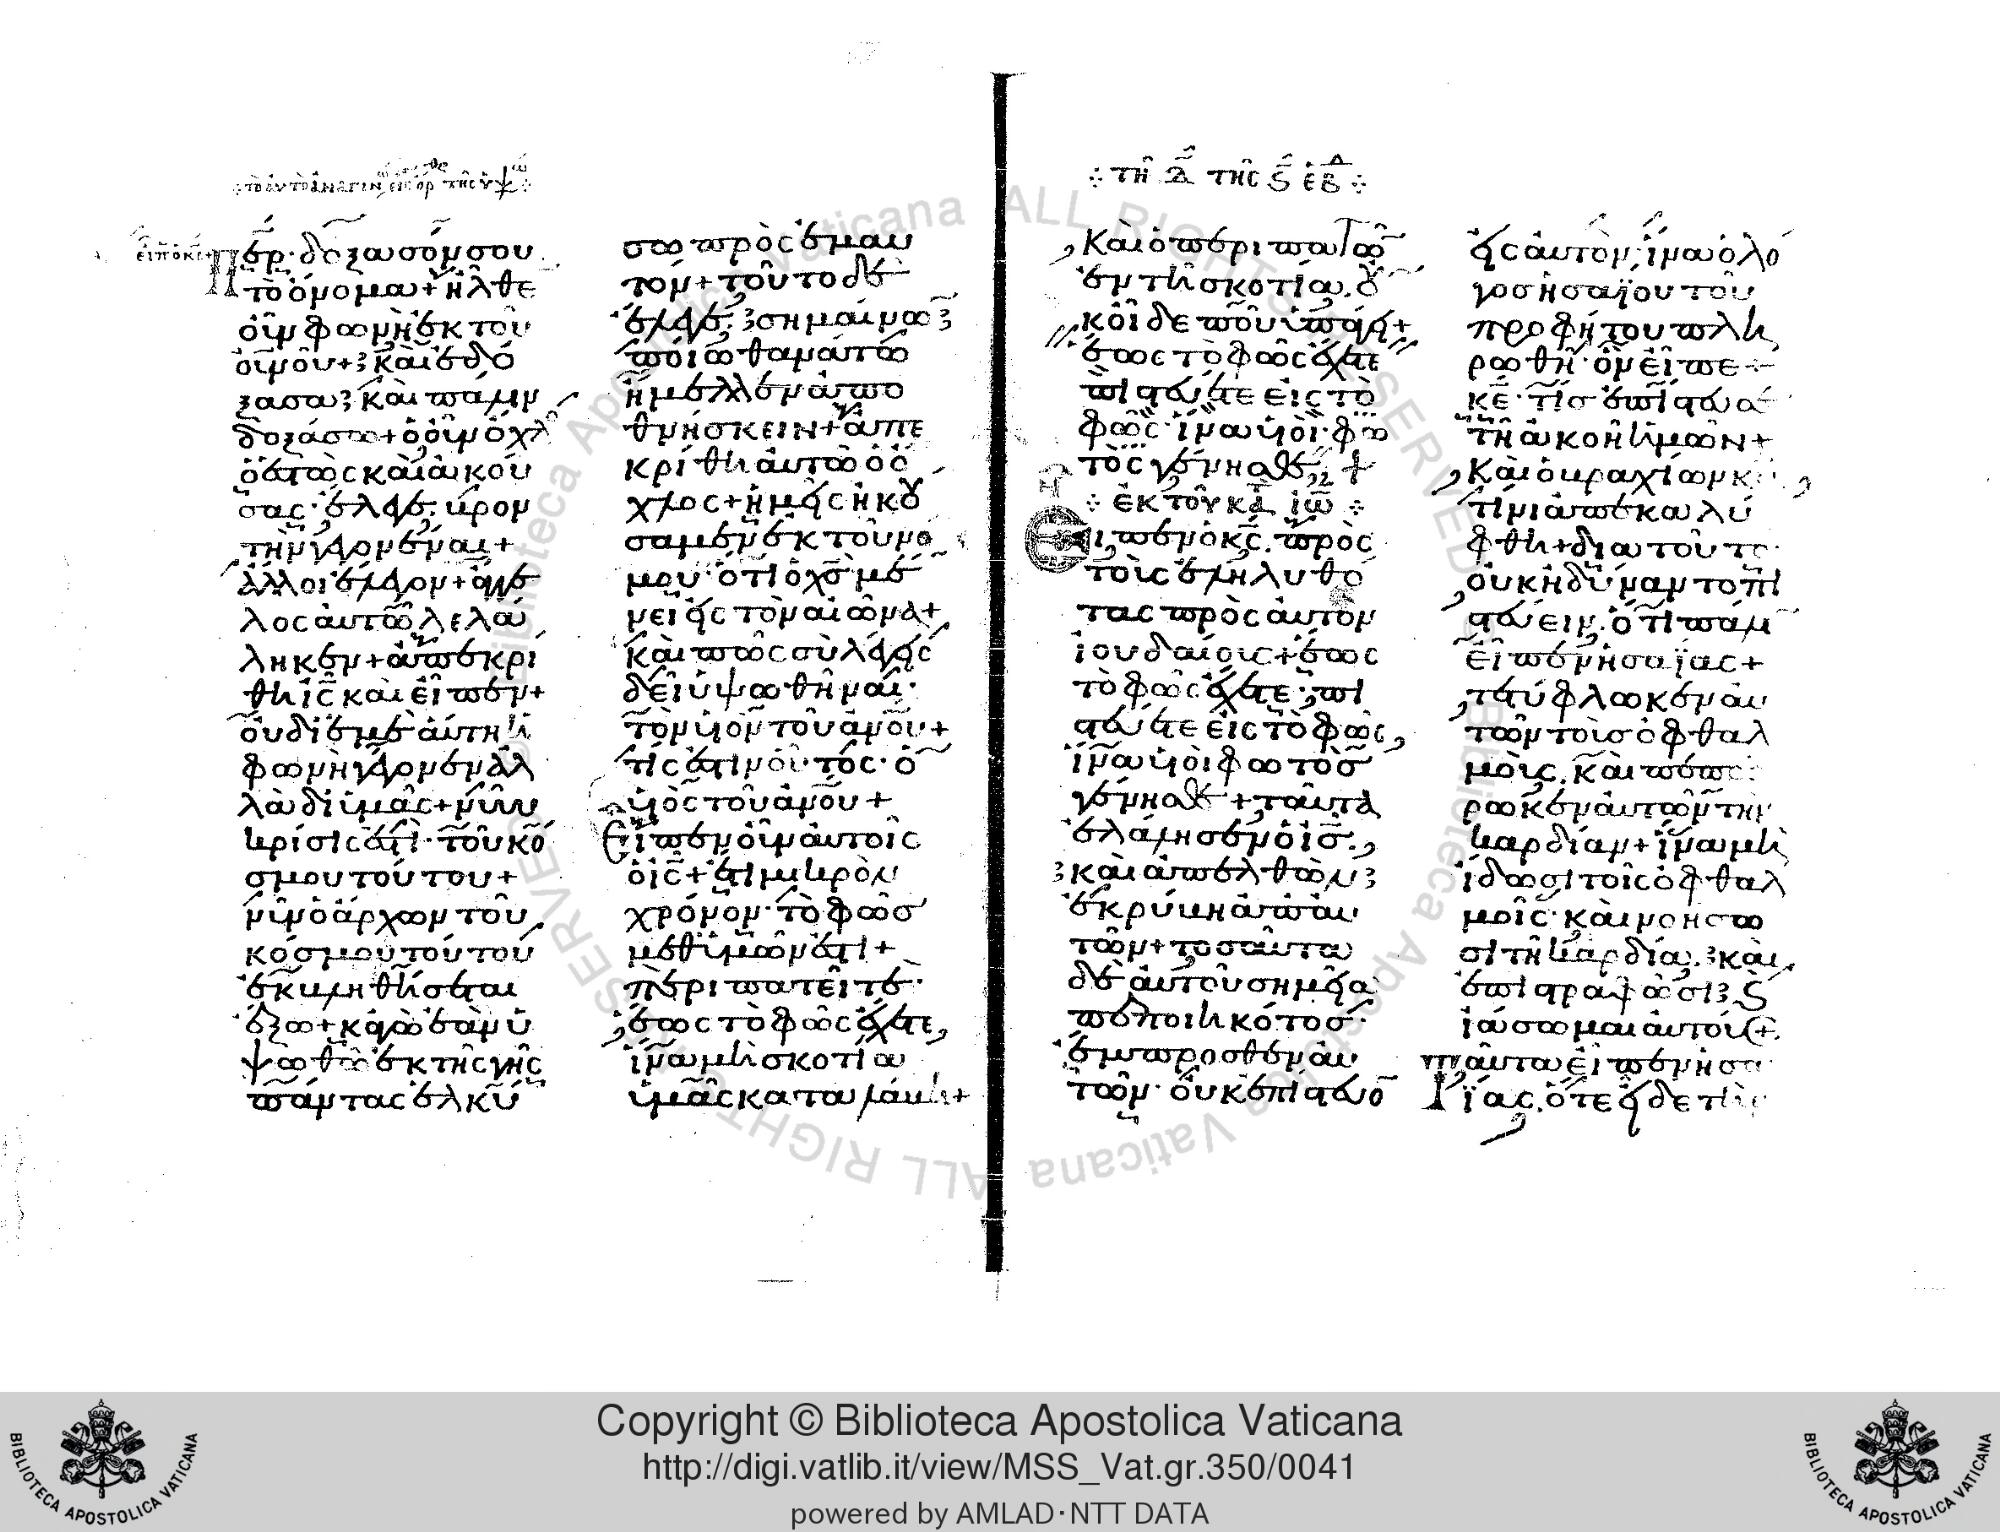 τὸ αὐτὸ ἀναγιν εἰς ἑορ τῆς ὑψω
εἶπ ὁ κς
Περ· δόξασόν σου
τὸ ὄνομα+ ἦλθε
οὖν φωνὴ ἐκ τοῦ
οὐνοῦ+ καὶ ἐδό
ξασα καὶ πάλιν
δοξάσω+ ὁ οὖν ὄχλ
ὁ ἑστὼς καὶ ἀκού
σας· ἔλεγε. βρον
τὴν γεγονέναι+
ἄλλοι ἔλεγον+ ἄγγε
λος αὐτῶ λελά
ληκεν+ ἀπεκρί
θη ις καὶ εἶπεν+
οὐ δι ἐμὲ αὕτη ἡ
φωνὴ γέγονεν ἀλ
λὰ δι ὑμᾶς+ νῦν
κρίσις ἐστὶ· τοῦ κό
σμου τούτου+
νῦν ὁ ἄρχων τοῦ
κόσμου τούτου
ἐκβληθήσεται
ἔξω+ κἀγὼ ἐὰν ὑ
ψωθῶ ἐκ τῆς γῆς
πάντας ἑλκύ
σω πρὸς ἐμαυ
τόν+ τοῦτο δὲ
ἔλεγε. σημαίνω
ποίω θανάτω
ἤμελλεν ἀπο
θνήσκειν+ ἀπε
κρίθη αὐτῶ ὁ ὄ
χλος+ ἡμεῖς ἠκού
σαμεν ἐκ τοῦ νό
μου· ὅτι ὁ χς μέ
νει εἰς τὸν αἰῶνα+
καὶ πῶς σὺ λέγεις
δεῖ ὑψωθῆναι·
τὸν υἱὸν τοῦ ανου+
τίς ἐστιν οὗτος· ὁ
υἱὸς τοῦ ανου+
Εἶπεν οὖν αὐτοῖς
ὁ ις+ ἔτι μικρὸν
χρόνον· τὸ φῶς
μεθ ὑμῶν ἐστι+
περιπατεῖτε·
ἕως τὸ φῶς ἔχετε,
ἵνα μὴ σκοτία
ὑμᾶς καταλάβη+
τῆ δ τῆς ϛ ἑβδ
Καὶ ὁ περιπατῶ
ἐν τῆ σκοτία. οὐ
κ οἶδε ποῦ ὑπάγει+
ἕως τὸ φῶς ἔχετε
πιστεύετε εἰς τὸ
φῶς· ἵνα υἱοὶ φω
τὸς γένησθε+
ἐκ τοῦ κατὰ ιω
Εἶπεν ὁ κς. πρὸς
τοὺς ἐληλυθό
τας πρὸς αὐτὸν
ἰουδαίους+ ἕως
τὸ φῶς ἔχετε· πι
στεύετε εἰς τὸ φῶς,
ἵνα υἱοὶ φωτὸς
γένησθε+ ταῦτα
ἐλάλησεν ὁ ις.
καὶ ἀπελθὼν
ἐκρύβη ἀπ αὐ
τῶν+ τοσαῦτα
δὲ αὐτοῦ σημεῖα
πεποιηκότος·
ἔμπροσθεν αὐ
τῶν· οὐκ ἐπίστευο
εἰς αὐτὸν· ἵνα ὁ λό
γος ἡσαΐου τοῦ
προφήτου πλη
ρωθῆ· ὃν εἶπε
κε· τίς ἐπίστευσε
τῆ ἀκοῆ ἡμῶν+
Καὶ ὁ βραχίων κυ
τίνι ἀπεκαλύ
φθη+ διὰ τοῦτο
οὐκ ἠδύναντο πι
στεύειν. ὅτι πάλιν
εἶπεν ἡσαΐας+
τετύφλωκεν αὐ
τῶν τοὺς ὀφθαλ
μοὺς. καὶ πεπώ
ρωκεν αὐτῶν τὴν
καρδίαν+ ἵνα μὴ
ἴδωσι τοῖς ὀφθαλ
μοῖς· καὶ νοήσω
σι τῆ καρδία. καὶ
ἐπιστραφῶσι ϗ
ἰάσωμαι αὐτούς+
ταῦτα εἶπεν ἡσα
ΐας, ὅτε εἶδε τὴν
Copyright © Biblioteca Apostolica Vaticana
http://digi.vatlib.it/view/MSS_Vat.gr.350/0041
powered by AMLAD·NTT DATA
BIBLIOTECA APOSTOLICA VATICANA
BIBLIOTECA APOSTOLICA VATICANA